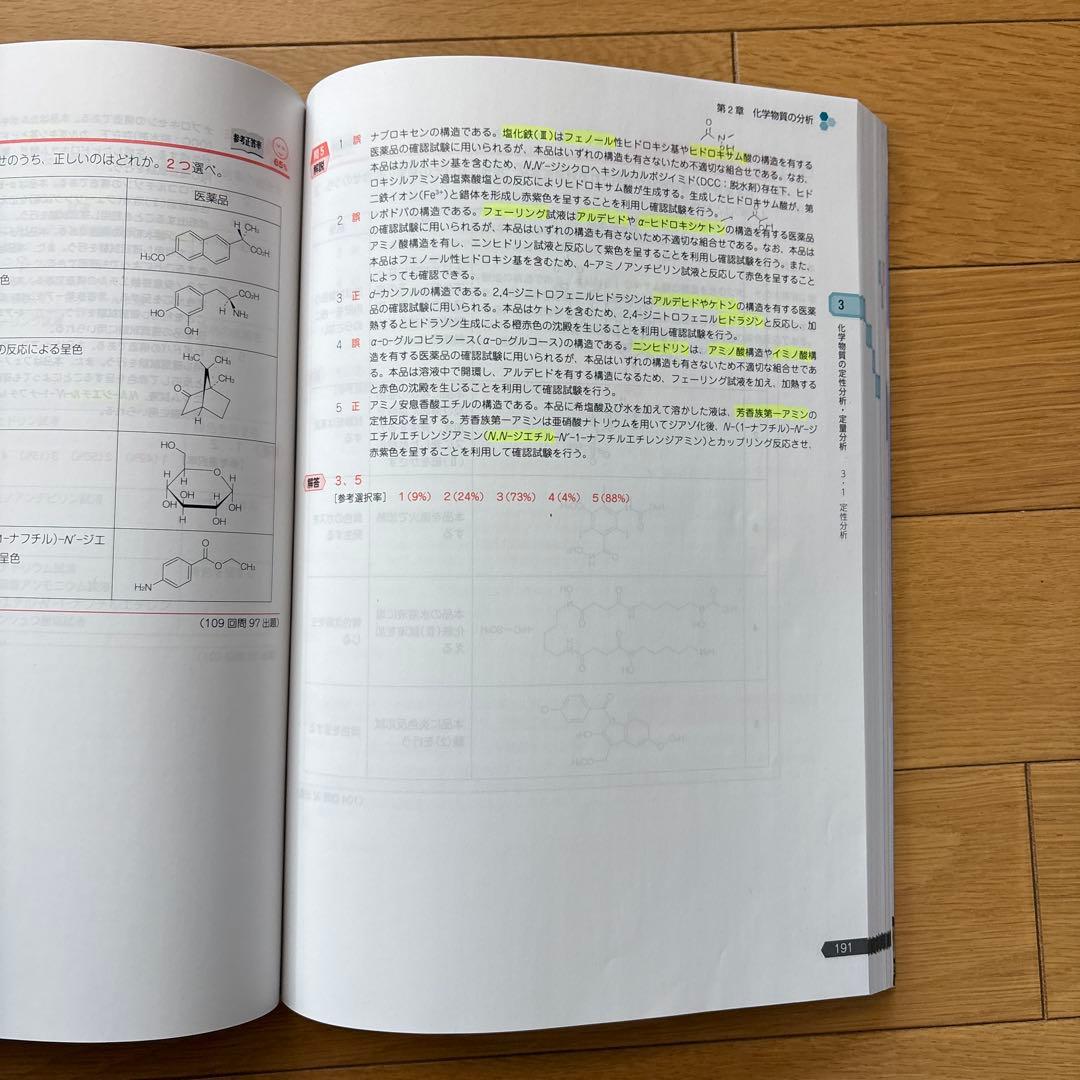 参考正答率
65%
せのうち、正しいのはどれか。2つ選べ。
医薬品
H CH₃
CO₂H
H₃CO
色
HO
OH
CO₂H
H NH₂
の反応による呈色
H₃C
CH₃
CH₃
O
H
HO
H
O
H
H
OH
H
OH
OH
H
OH
1-ナフチル)-N′-ジエ
呈色
O
O
CH₃
H₂N
(109回問97出題)
第2章 化学物質の分析
問5
解説
1 誤 ナプロキセンの構造である。塩化鉄(Ⅲ)はフェノール性ヒドロキシ基やヒドロキサム酸の構造を有する
医薬品の確認試験に用いられるが、本品はいずれの構造も有さないため不適切な組合せである。なお、
本品はカルボキシ基を含むため、N,N′-ジシクロヘキシルカルボジイミド(DCC:脱水剤)存在下、ヒド
ロキシルアミン過塩素酸塩との反応によりヒドロキサム酸が生成する。生成したヒドロキサム酸が、第
二鉄イオン(Fe³⁺)と錯体を形成し赤紫色を呈することを利用し確認試験を行う。
2 誤 レボドパの構造である。フェーリング試液はアルデヒドやα-ヒドロキシケトンの構造を有する医薬品
の確認試験に用いられるが、本品はいずれの構造も有さないため不適切な組合せである。なお、本品は
アミノ酸構造を有し、ニンヒドリン試液と反応して紫色を呈することを利用し確認試験を行う。また、
本品はフェノール性ヒドロキシ基を含むため、4-アミノアンチピリン試液と反応して赤色を呈すること
によっても確認できる。
3 正 d-カンフルの構造である。2,4-ジニトロフェニルヒドラジンはアルデヒドやケトンの構造を有する医薬
品の確認試験に用いられる。本品はケトンを含むため、2,4-ジニトロフェニルヒドラジンと反応し、加
熱するとヒドラゾン生成による橙赤色の沈殿を生じることを利用し確認試験を行う。
4 誤 α-D-グルコピラノース(α-D-グルコース)の構造である。ニンヒドリンは、アミノ酸構造やイミノ酸構
造を有する医薬品の確認試験に用いられるが、本品はいずれの構造も有さないため不適切な組合せであ
る。本品は溶液中で開環し、アルデヒドを有する構造になるため、フェーリング試液を加え、加熱する
と赤色の沈殿を生じることを利用して確認試験を行う。
5 正 アミノ安息香酸エチルの構造である。本品に希塩酸及び水を加えて溶かした液は、芳香族第一アミンの
定性反応を呈する。芳香族第一アミンは亜硝酸ナトリウムを用いてジアゾ化後、N-(1-ナフチル)-N′-ジ
エチルエチレンジアミン(N,N-ジエチル-N′-1-ナフチルエチレンジアミン)とカップリング反応させ、
赤紫色を呈することを利用して確認試験を行う。
解答 3、5
[参考選択率] 1(9%) 2(24%) 3(73%) 4(4%) 5(88%)
3
化学物質の定性分析・定量分析 3・1 定性分析
191